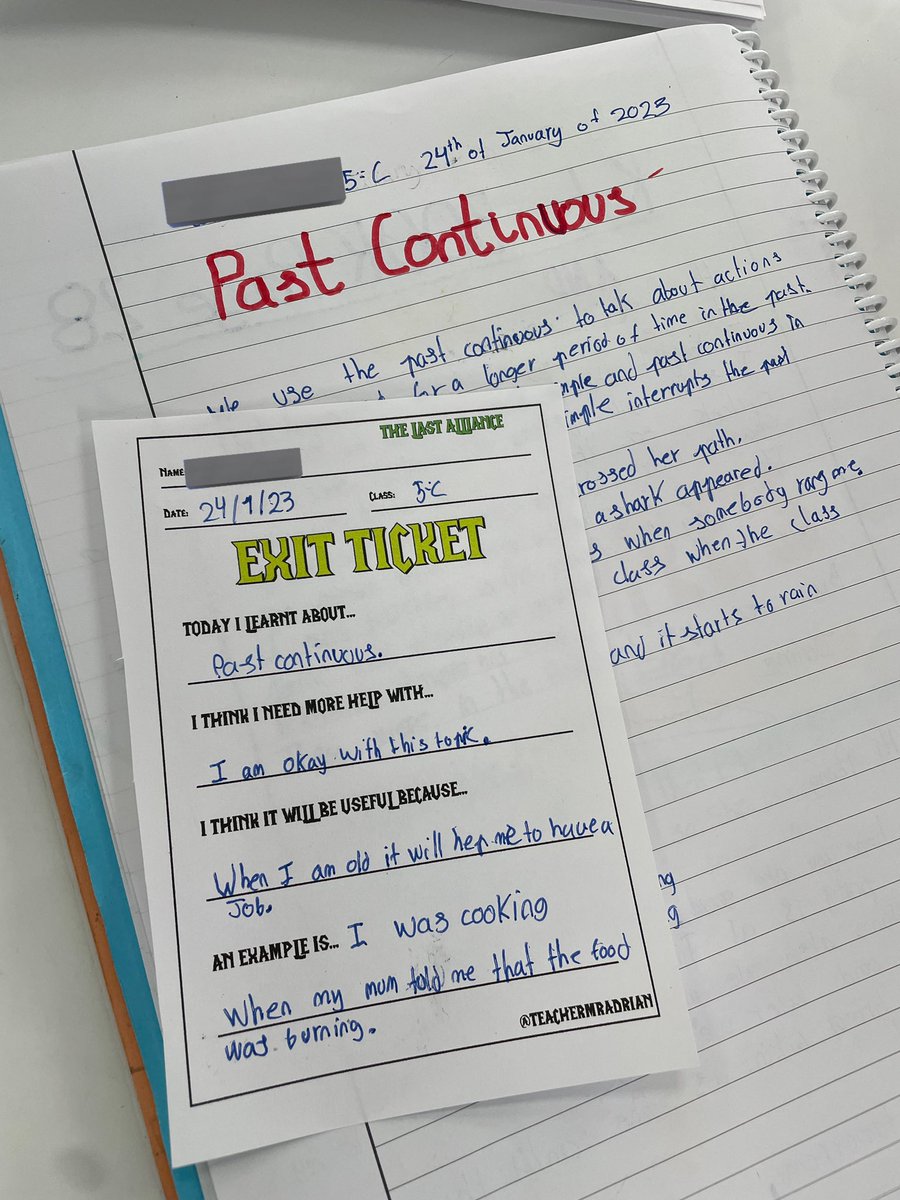 5:C 24th of January of 2023
Past Continuous
We use the past continuous to talk about actions
for a longer period of time in the past.
simple and past continuous in
simple interrupts the past
crossed her path.
a shark appeared.
s when somebody rang me.
class when the class
and it starts to rain
THE LAST ALLIANCE
NAME
DATE: 24/1/23 CLASS: 5:C
EXIT TICKET
TODAY I LEARNT ABOUT...
Past continuous.
I THINK I NEED MORE HELP WITH...
I am okay with this topic.
I THINK IT WILL BE USEFUL BECAUSE...
When I am old it will hep me to have a
Job.
AN EXAMPLE IS... I was cooking
When my mum told me that the food
was burning.
@TEACHERMRADRIAN